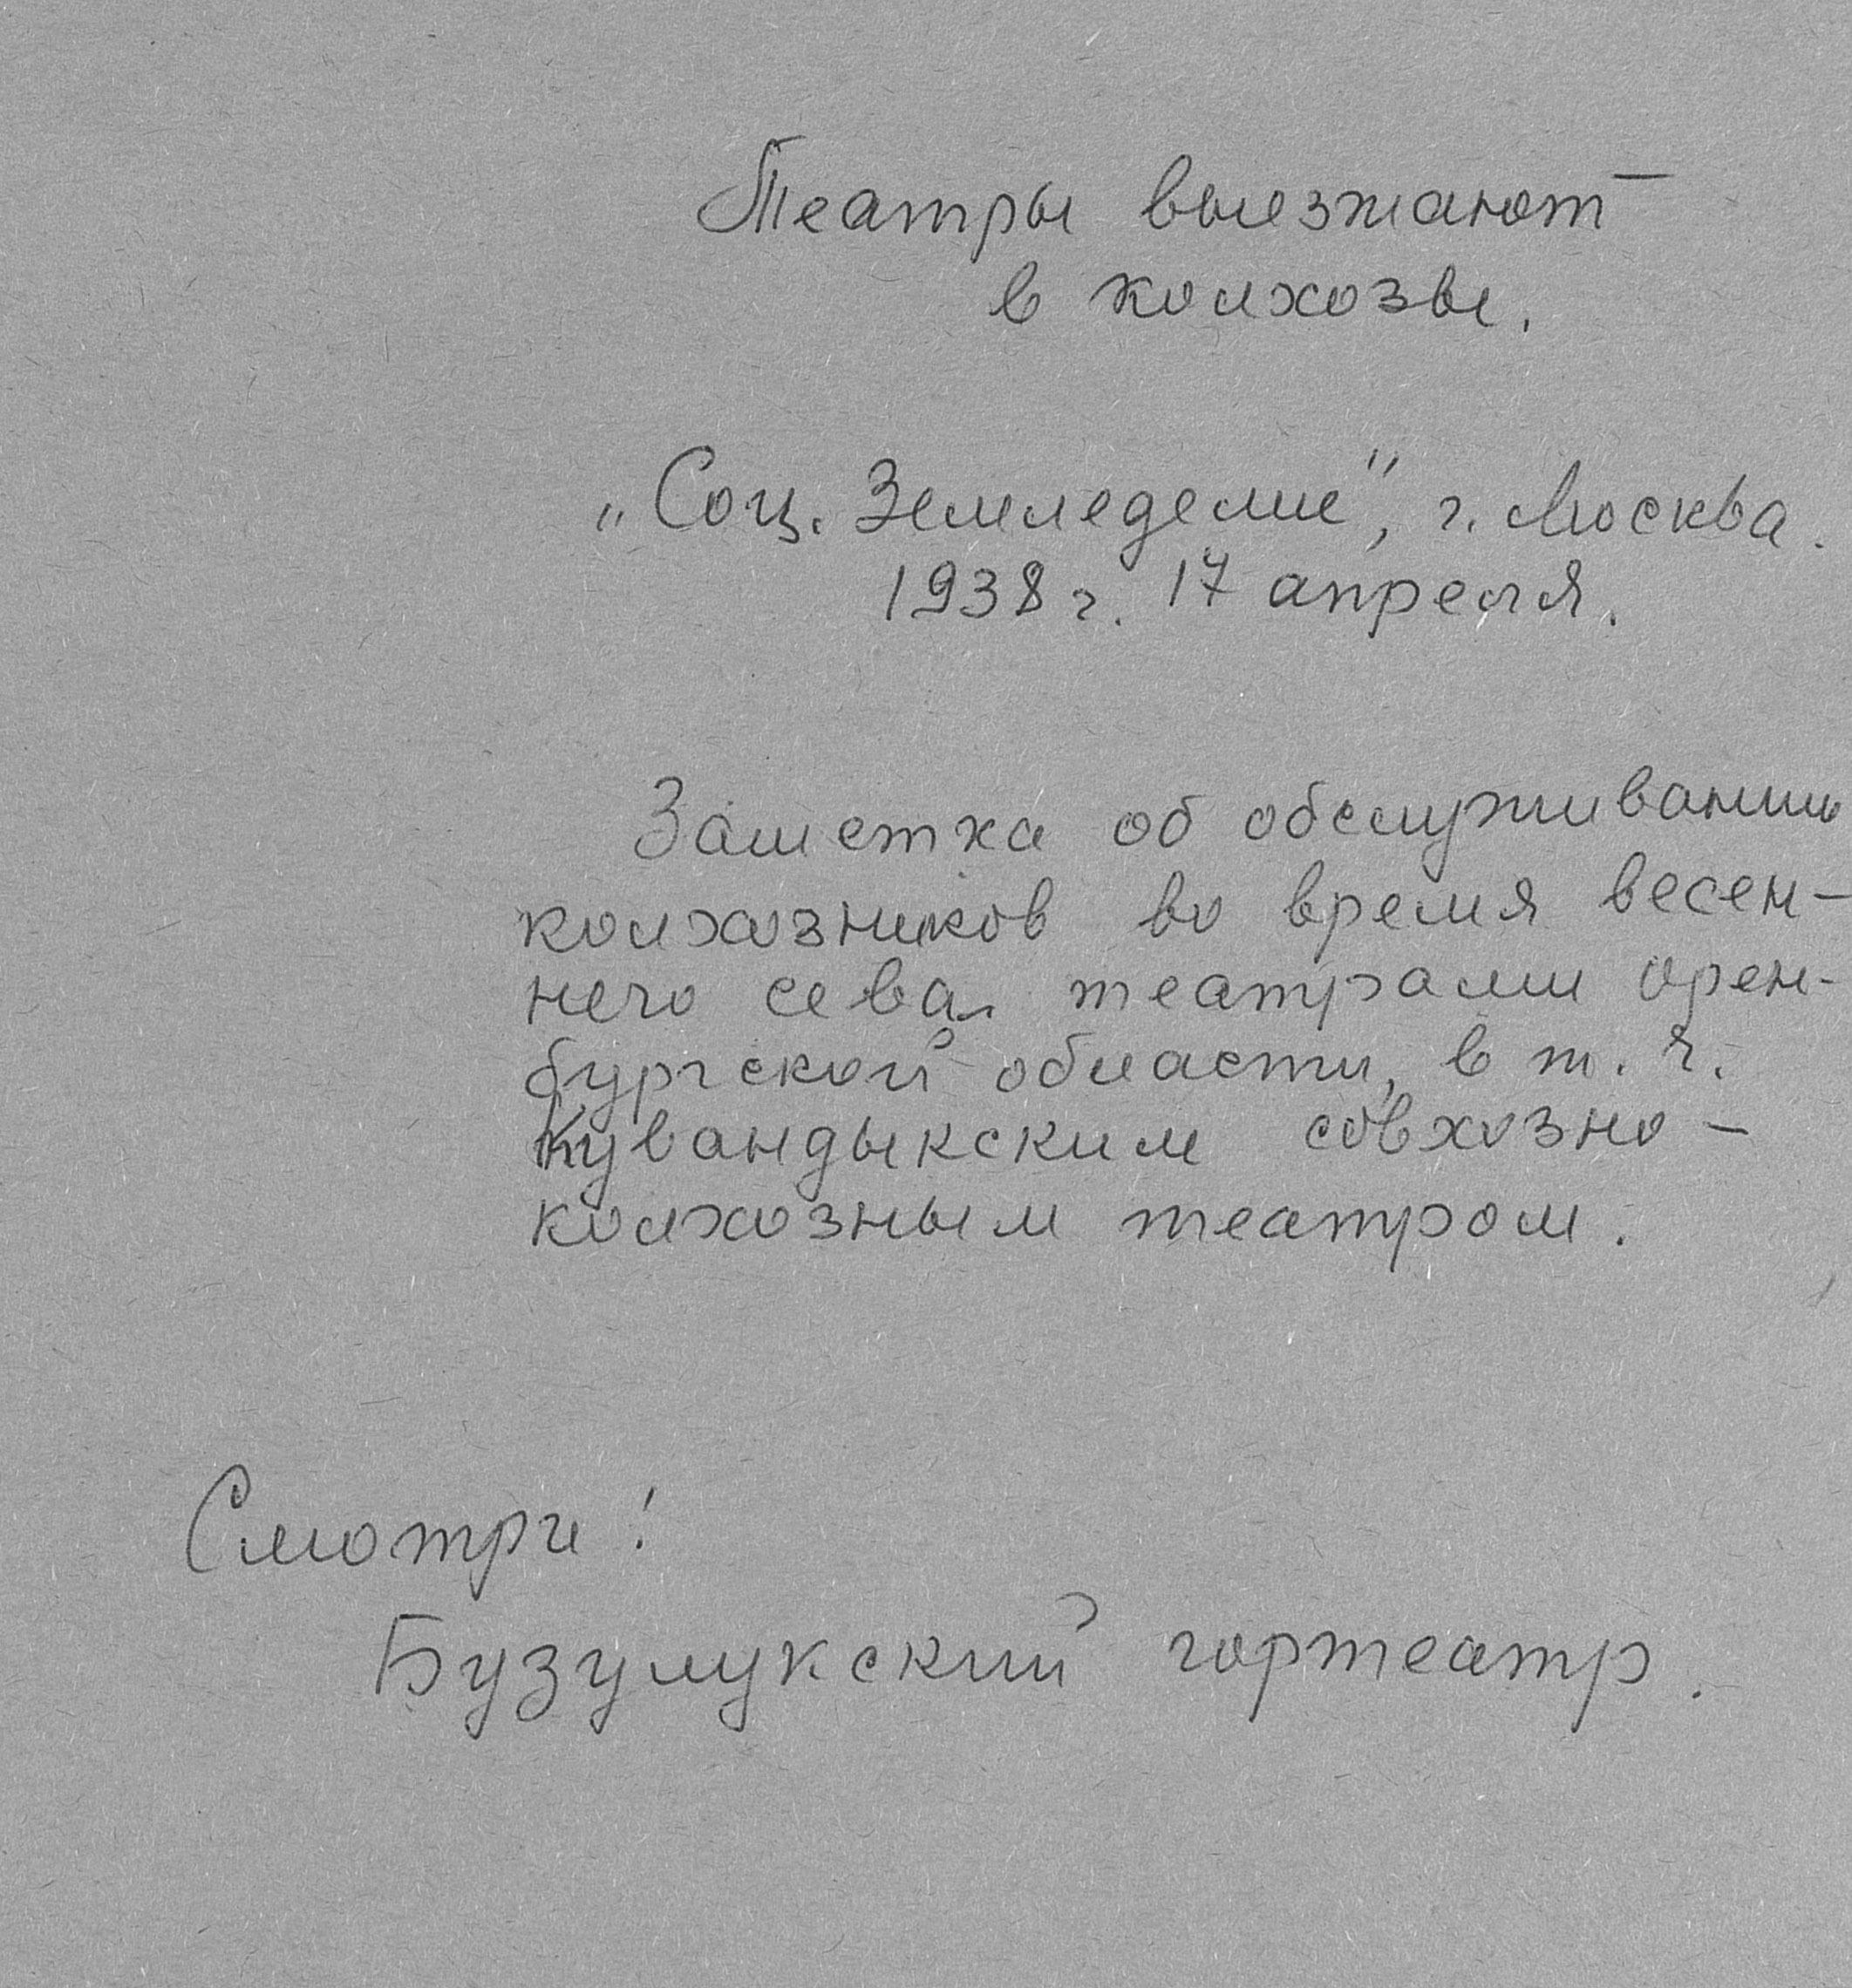 Театры выезжают
в колхозы.
„Соц. Земледелие", г. Москва.
1938 г. 17 апреля.
Заметка об обслуживании
колхозников во время весен-
него сева театрами орен-
бургской области, в т. ч.
Кувандыкским совхозно-
колхозным театром.
Смотри!
Бузулукский гортеатр.